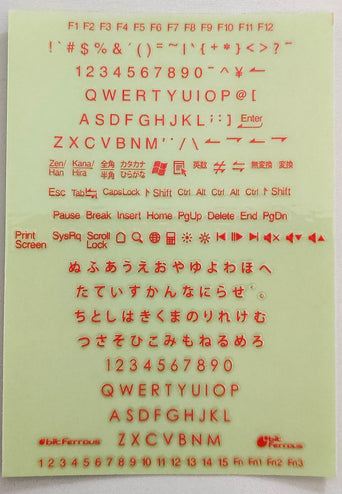 F1 F2 F3 F4 F5 F6 F7 F8 F9 F10 F11 F12
! ` # $ % & ´ ( ) = ~ | ` { + * } < > ? ¯
1 2 3 4 5 6 7 8 9 0 - ^ ¥ ←
Q W E R T Y U I O P @ [
A S D F G H J K L ; : ] Enter
Z X C V B N M , . / \
Zen/Han Kana/Hira 全角半角 カタカナひらがな 英数 無変換 変換
Esc Tab CapsLock ↑ Shift Ctrl Alt Ctrl Alt Ctrl ↑ Shift
Pause Break Insert Home PgUp Delete End PgDn
Print Screen SysRq Scroll Lock
ぬ ふ あ う え お や ゆ よ わ ほ へ
た て い す か ん な に ら せ ゛ ゜
ち と し は き く ま の り れ け む
つ さ そ ひ こ み も ね る め ろ
1 2 3 4 5 6 7 8 9 0
Q W E R T Y U I O P
A S D F G H J K L
bit Ferrous Z X C V B N M bit Ferrous
1 2 3 4 5 6 7 8 9 10 11 12 13 14 15 Fn Fn1 Fn2 Fn3